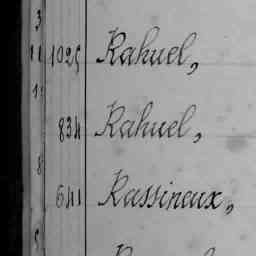 3
11 1025 Rahuel,
11
834 Rahuel,
8
641 Rassineux,